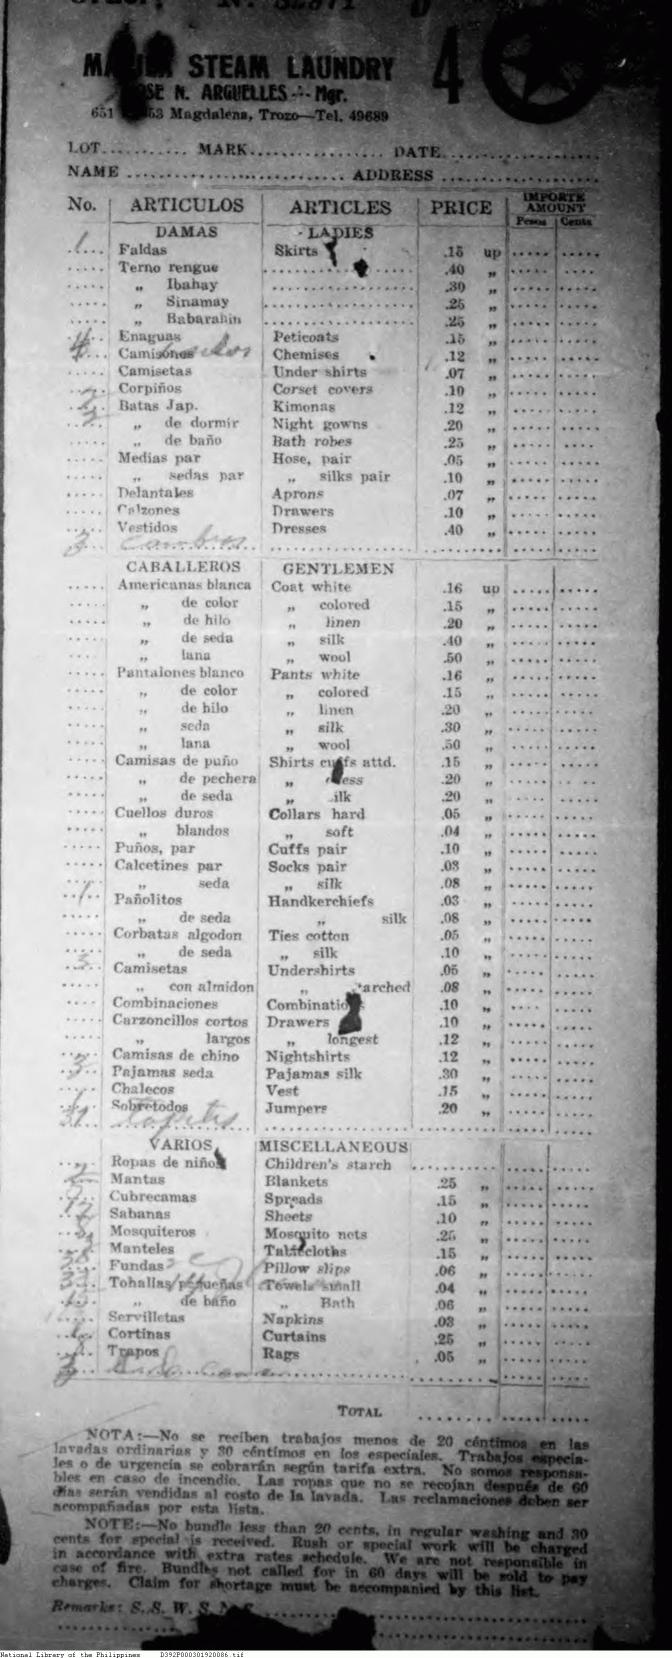 STEAM LAUNDRY 4
N. ARGUELLES -:- Mgr.
651 53 Magdalena, Trozo—Tel. 49689
LOT........... MARK................. DATE....................
NAME ............................... ADDRESS ....................
No. ARTICULOS ARTICLES PRICE IMPORTE AMOUNT
Pesos Cents
DAMAS LADIES
1 Faldas Skirts .15 up
Terno rengue .40 „
„ Ibahay .30 „
„ Sinamay .25 „
„ Babarahin .25 „
Enaguas Peticoats .15 „
Camisones Chemises .12 „
Camisetas Under shirts .07 „
Corpiños Corset covers .10 „
Batas Jap. Kimonas .12 „
„ de dormir Night gowns .20 „
„ de baño Bath robes .25 „
Medias par Hose, pair .05 „
„ sedas par „ silks pair .10 „
Delantales Aprons .07 „
Calzones Drawers .10 „
Vestidos Dresses .40 „
CABALLEROS GENTLEMEN
Americanas blanca Coat white .16 up
„ de color „ colored .15 „
„ de hilo „ linen .20 „
„ de seda „ silk .40 „
„ lana „ wool .50 „
Pantalones blanco Pants white .16 „
„ de color „ colored .15 „
„ de hilo „ linen .20 „
„ seda „ silk .30 „
„ lana „ wool .50 „
Camisas de puño Shirts cuffs attd. .15 „
„ de pechera „ .20 „
„ de seda „ .20 „
Cuellos duros Collars hard .05 „
„ blandos „ soft .04 „
Puños, par Cuffs pair .10 „
Calcetines par Socks pair .03 „
„ seda „ silk .08 „
Pañolitos Handkerchiefs .03 „
„ de seda „ silk .08 „
Corbatas algodon Ties cotton .05 „
„ de seda „ silk .10 „
Camisetas Undershirts .05 „
„ con almidon „ .08 „
Combinaciones .10 „
Carzoncillos cortos Drawers .10 „
„ largos „ longest .12 „
Camisas de chino Nightshirts .12 „
Pajamas seda Pajamas silk .30 „
Chalecos Vest .15 „
Sobretodos Jumpers .20 „
Tapetes
VARIOS MISCELLANEOUS
Ropas de niños Children's starch
Mantas Blankets .25 „
Cubrecamas Spreads .15 „
Sabanas Sheets .10 „
Mosquiteros Mosquito nets .25 „
Manteles Tablecloths .15 „
Fundas Pillow slips .06 „
Tohallas pequeñas Towels small .04 „
„ de baño „ Bath .06 „
Servilletas Napkins .03 „
Cortinas Curtains .25 „
Trapos Rags .05 „
TOTAL
NOTA:—No se reciben trabajos menos de 20 céntimos en las
lavadas ordinarias y 30 céntimos en los especiales. Trabajos especia-
les o de urgencia se cobrarán según tarifa extra. No somos responsa-
bles en caso de incendio. Las ropas que no se recojan después de 60
días serán vendidas al costo de la lavada. Las reclamaciones deben ser
acompañadas por esta lista.
NOTE:—No bundle less than 20 cents, in regular washing and 30
cents for special is received. Rush or special work will be charged
in accordance with extra rates schedule. We are not responsible in
case of fire. Bundles not called for in 60 days will be sold to pay
charges. Claim for shortage must be accompanied by this list.
Remarks: S. S. W. S.
National Library of the Philippines D392P000301920086.tif